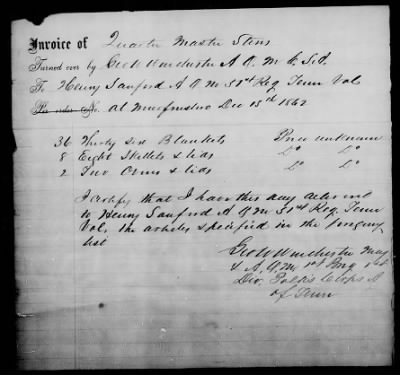 Invoice of Quarter Master Stors
Turned over by Geo W Winchester A Q M P.S.A.
To Henry Sanford A Q M 51st Reg Tenn Vols
Per order No. At Murfresboro Dec 13th 1862
36 Thirty Six Blankets Price unknown
8 Eight Skillets & lids Do Do
2 Two Ovens & lids Do Do
I certify that I have this day deliverd
to Henry Sanford A Q M 51st Reg Tenn
Vol, the articles specified in the foregoing
list
Geo W Winchester Maj
& A. Q. M. 1st Brig 1st
Div. Polks Corps A
of Tenn